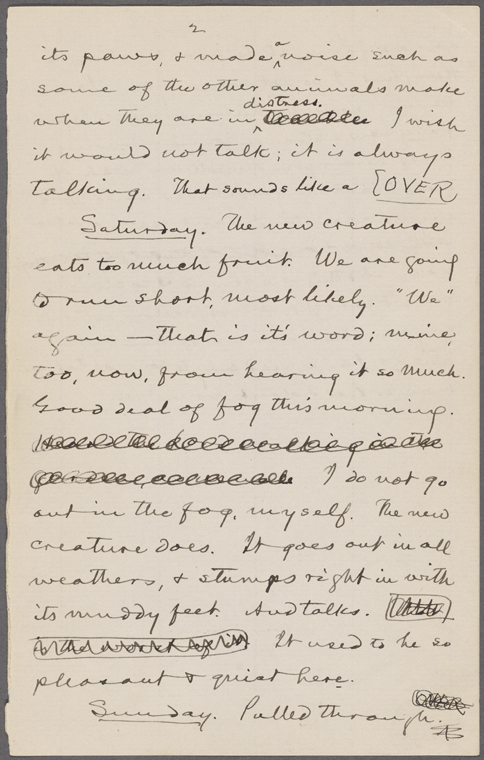 2
its paws, & made a noise such as
some of the other animals make
when they are in distress. I wish
it would not talk; it is always
talking. That sounds like a [OVER
Saturday. The new creature
eats too much fruit. We are going
to run short, most likely. "We"
again — that is it's word; mine,
too, now, from hearing it so much.
Good deal of fog this morning.
I do not go
out in the fog, myself. The new
creature does. It goes out in all
weathers, & stumps right in with
its muddy feet. And talks.
It used to be so
pleasant & quiet here.
Sunday. Pulled through.